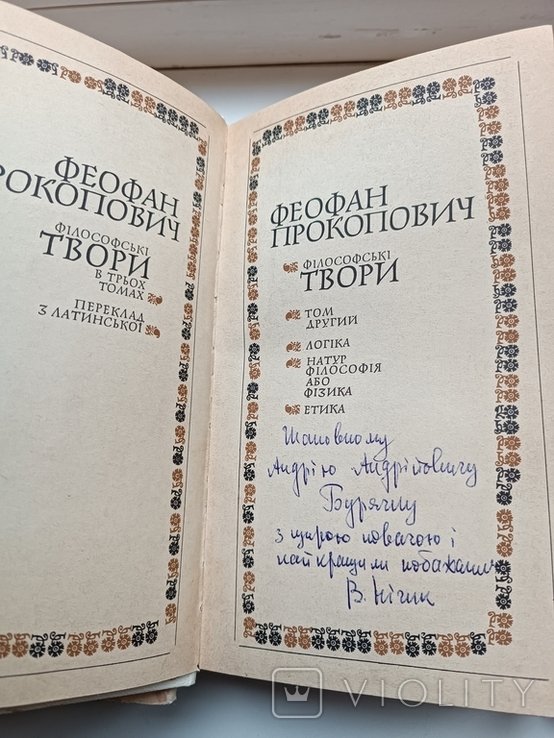 ФЕОФАН
РОКОПОВИЧ
ФІЛОСОФСЬКІ
ТВОРИ
В ТРЬОХ
ТОМАХ
ПЕРЕКЛАД
З ЛАТИНСЬКОЇ
ФЕОФАН
ПРОКОПОВИЧ
ФІЛОСОФСЬКІ
ТВОРИ
ТОМ
ДРУГИЙ
ЛОГІКА
НАТУР
ФІЛОСОФІЯ
АБО
ФІЗИКА
ЕТИКА
Шановному
Андрію Андрійовичу
Бурячку
з щирою повагою і
найкращими побажаннями
В. Нічик
VIOLITY